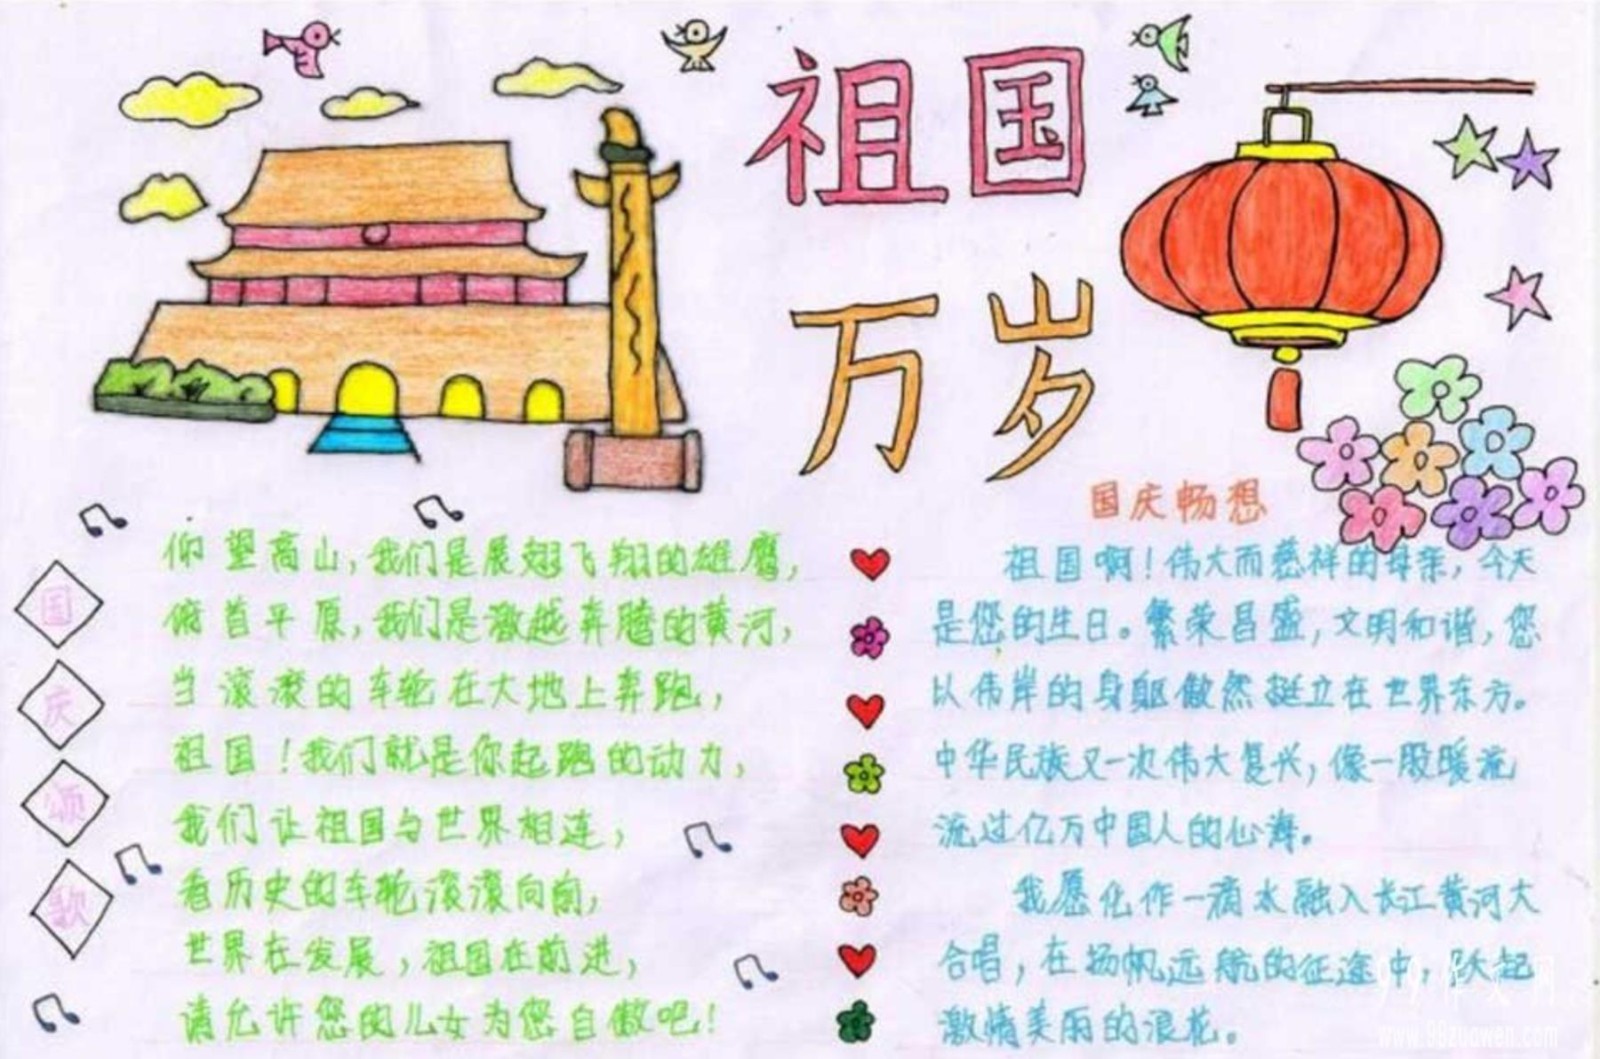 祖国
万岁
国庆颂歌
仰望高山,我们是展翅飞翔的雄鹰,
俯首平原,我们是激越奔腾的黄河,
当滚滚的车轮在大地上奔跑,
祖国!我们就是你起跑的动力,
我们让祖国与世界相连,
看历史的车轮滚滚向前,
世界在发展,祖国在前进,
请允许您的儿女为您自傲吧!
国庆畅想
祖国啊!伟大而慈祥的母亲,今天
是您的生日。繁荣昌盛,文明和谐,您
以伟岸的身躯傲然挺立在世界东方。
中华民族又一次伟大复兴,像一股暖流
流过亿万中国人的心海。
我愿化作一滴水融入长江黄河大
合唱,在扬帆远航的征途中,跃起
激情美丽的浪花。
www.99zuowen.com